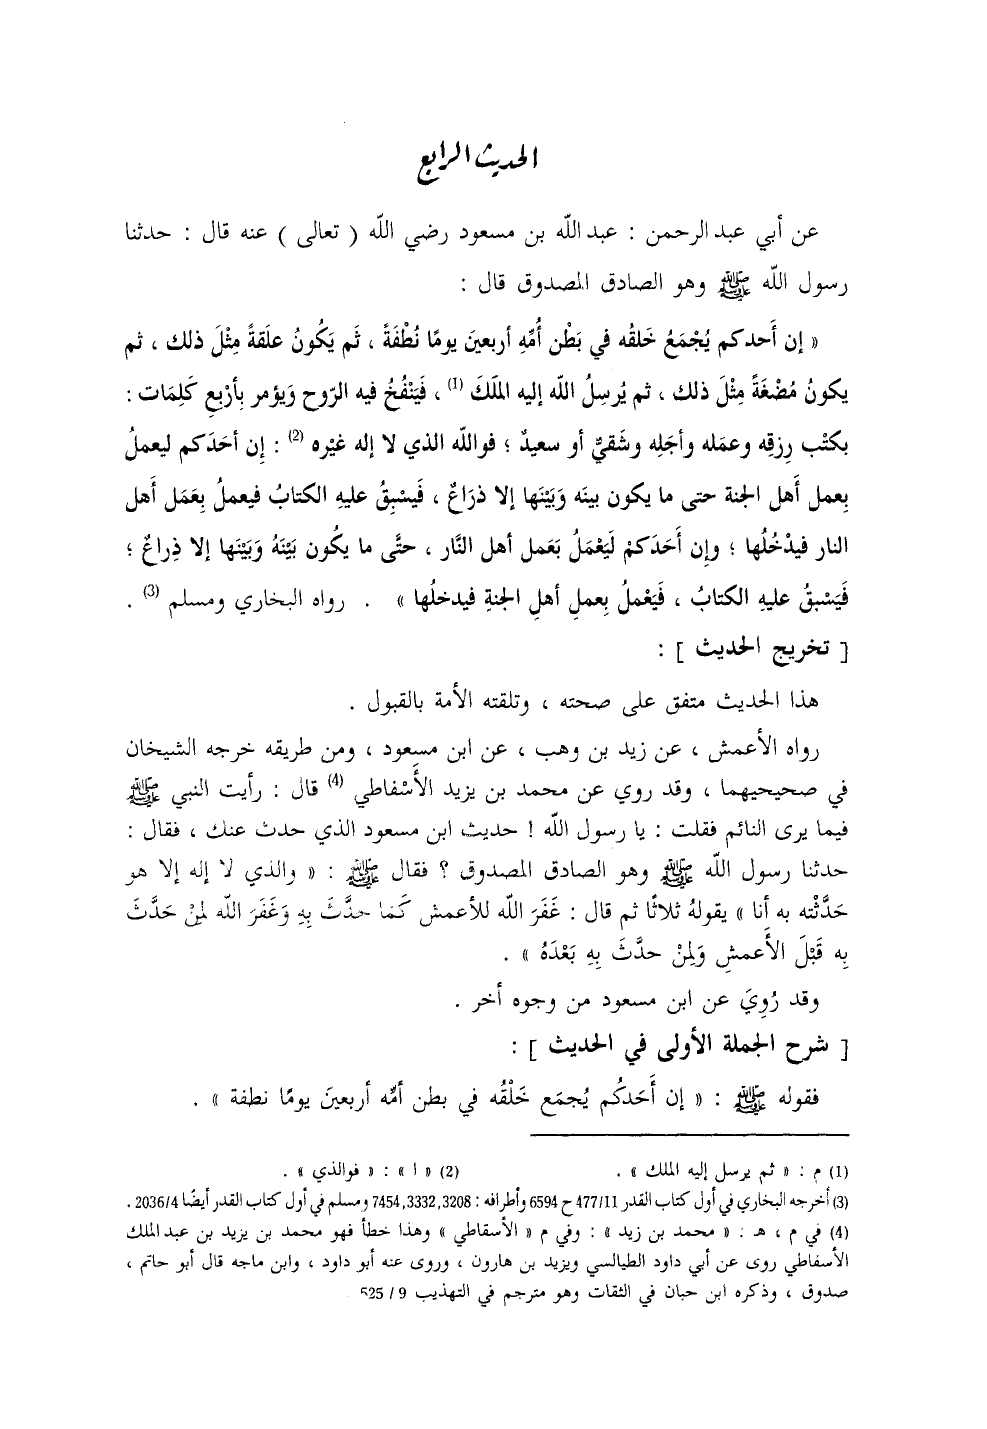 الحديث الرابع
عن أبي عبد الرحمن : عبد الله بن مسعود رضي الله ( تعالى ) عنه قال : حدثنا
رسول الله ﷺ وهو الصادق المصدوق قال :
« إن أَحدكم يُجْمَعُ خَلقُه في بَطْن أُمِّهِ أربعينَ يومًا نُطْفَةً ، ثَم يَكُونُ علَقةً مِثْلَ ذلك ، ثم
يكونُ مُضْغَةً مِثْلَ ذلك ، ثم يُرسِلُ الله إليه المَلَكَ (1) ، فَيَنْفُخُ فيه الرّوح وَيؤمر بِأرْبعِ كَلِمَات :
بكتْب رِزقِه وعمَله وأجَلِه وشَقيٌّ أو سعيدٌ ؛ فوالله الذي لا إله غيْره (2) : إِن أحَدَكم ليعملُ
بِعمل أَهل الجنة حتى ما يكون بينَه وَبَيْنَها إلا ذرَاعٌ ، فَيسْبِقُ عليهِ الكتابُ فيعملُ بِعَمَل أَهل
النار فيدْخُلُها ؛ وإِن أَحَدَكمْ لَيَعْمَلُ بَعَمل أهل النَّار ، حتَّى ما يكُون بَيْنَهُ وَبَيْنَها إلا ذِراعٌ ؛
فَيَسْبقُ عليهِ الكتابُ ، فَيَعْملُ بِعملِ أهلِ الجنةِ فيدخلُها » . رواه البخاري ومسلم (3) .
[ تخريج الحديث ] :
هذا الحديث متفق على صحته ، وتلقته الأمة بالقبول .
رواه الأعمش ، عن زيد بن وهب ، عن ابن مسعود ، ومن طريقه خرجه الشيخان
في صحيحيهما ، وقد روي عن محمد بن يزيد الأَسْفاطي (4) قال : رأيت النبي ﷺ
فيما يرى النائم فقلت : يا رسول الله ! حديث ابن مسعود الذي حدث عنك ، فقال :
حدثنا رسول الله ﷺ وهو الصادق المصدوق ؟ فقال ﷺ : « والذي لا إله إلا هو
حَدَّثْته به أنا » يقولهُ ثلاثًا ثم قال : غَفَرَ الله للأعمش كَما حدَّثَ بِهِ وَغَفَرَ الله لِمنْ حَدَّثَ
بِه قَبْلَ الأَعمشِ وَلِمنْ حدَّثَ بِهِ بَعْدَهُ » .
وقد رُوِيَ عن ابن مسعود من وجوه أخر .
[ شرح الجملة الأولى في الحديث ] :
فقوله ﷺ : « إن أَحَدكُم يُجمَع خَلْقُه في بطن أمِّه أربعينَ يومًا نطفة » .
(1) م : « ثم يرسل إليه الملك » . (2) « ا » : « فوالذي » .
(3) أخرجه البخاري في أول كتاب القدر 477/11 ح 6594 وأطرافه : 3208 ,3332 ,7454 ومسلم في أول كتاب القدر أيضًا 2036/4 .
(4) في م ، هـ : « محمد بن زيد » : وفي م « الأسقاطي » وهذا خطأ فهو محمد بن يزيد بن عبد الملك
الأسفاطي روى عن أبي داود الطيالسي ويزيد بن هارون ، وروى عنه أبو داود ، وابن ماجه قال أبو حاتم ،
صدوق ، وذكره ابن حبان في الثقات وهو مترجم في التهذيب 9 / 525